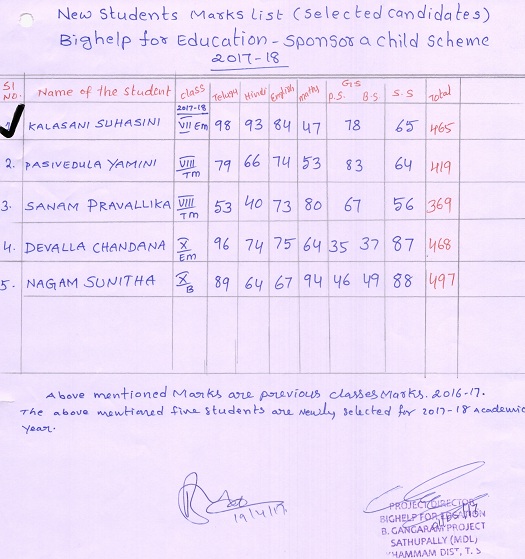 New Students Marks List (Selected candidates)
Bighelp for Education - Sponsor a Child Scheme
2017-18
Sl NO. Name of the Student class Telugu Hindi English maths G.S P.S. B.S S.S Total
2017-18
KALASANI SUHASINI VII Em 98 93 84 47 78 65 465
2. PASIVEDULA YAMINI VIII TM 79 66 74 53 83 64 419
3. SANAM PRAVALLIKA VIII TM 53 40 73 80 67 56 369
4. DEVALLA CHANDANA X Em 96 74 75 64 35 37 87 468
5. NAGAM SUNITHA X B 89 64 67 94 46 49 88 497
Above mentioned Marks are previous classes Marks. 2016-17.
The above mentioned five students are Newly Selected for 2017-18 Academic
Year.
19/4/17
PROJECT DIRECTOR
BIGHELP FOR
B. GANGARAM PROJECT
SATHUPALLY (MDL)
KHAMMAM DIST, T.S